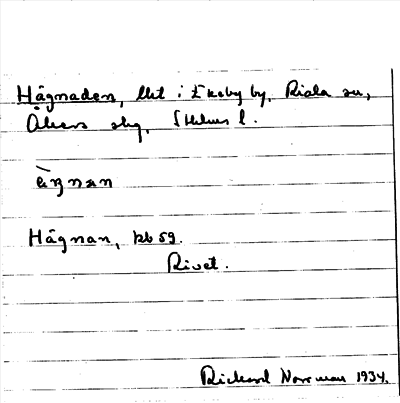 Hägnaden, lht i Ekeby by, Riala sn,
Åkers skg, Sthlms l.
hägnan
Hägnan, kb 59.
Rivet.
Rickard Norrman 1934.